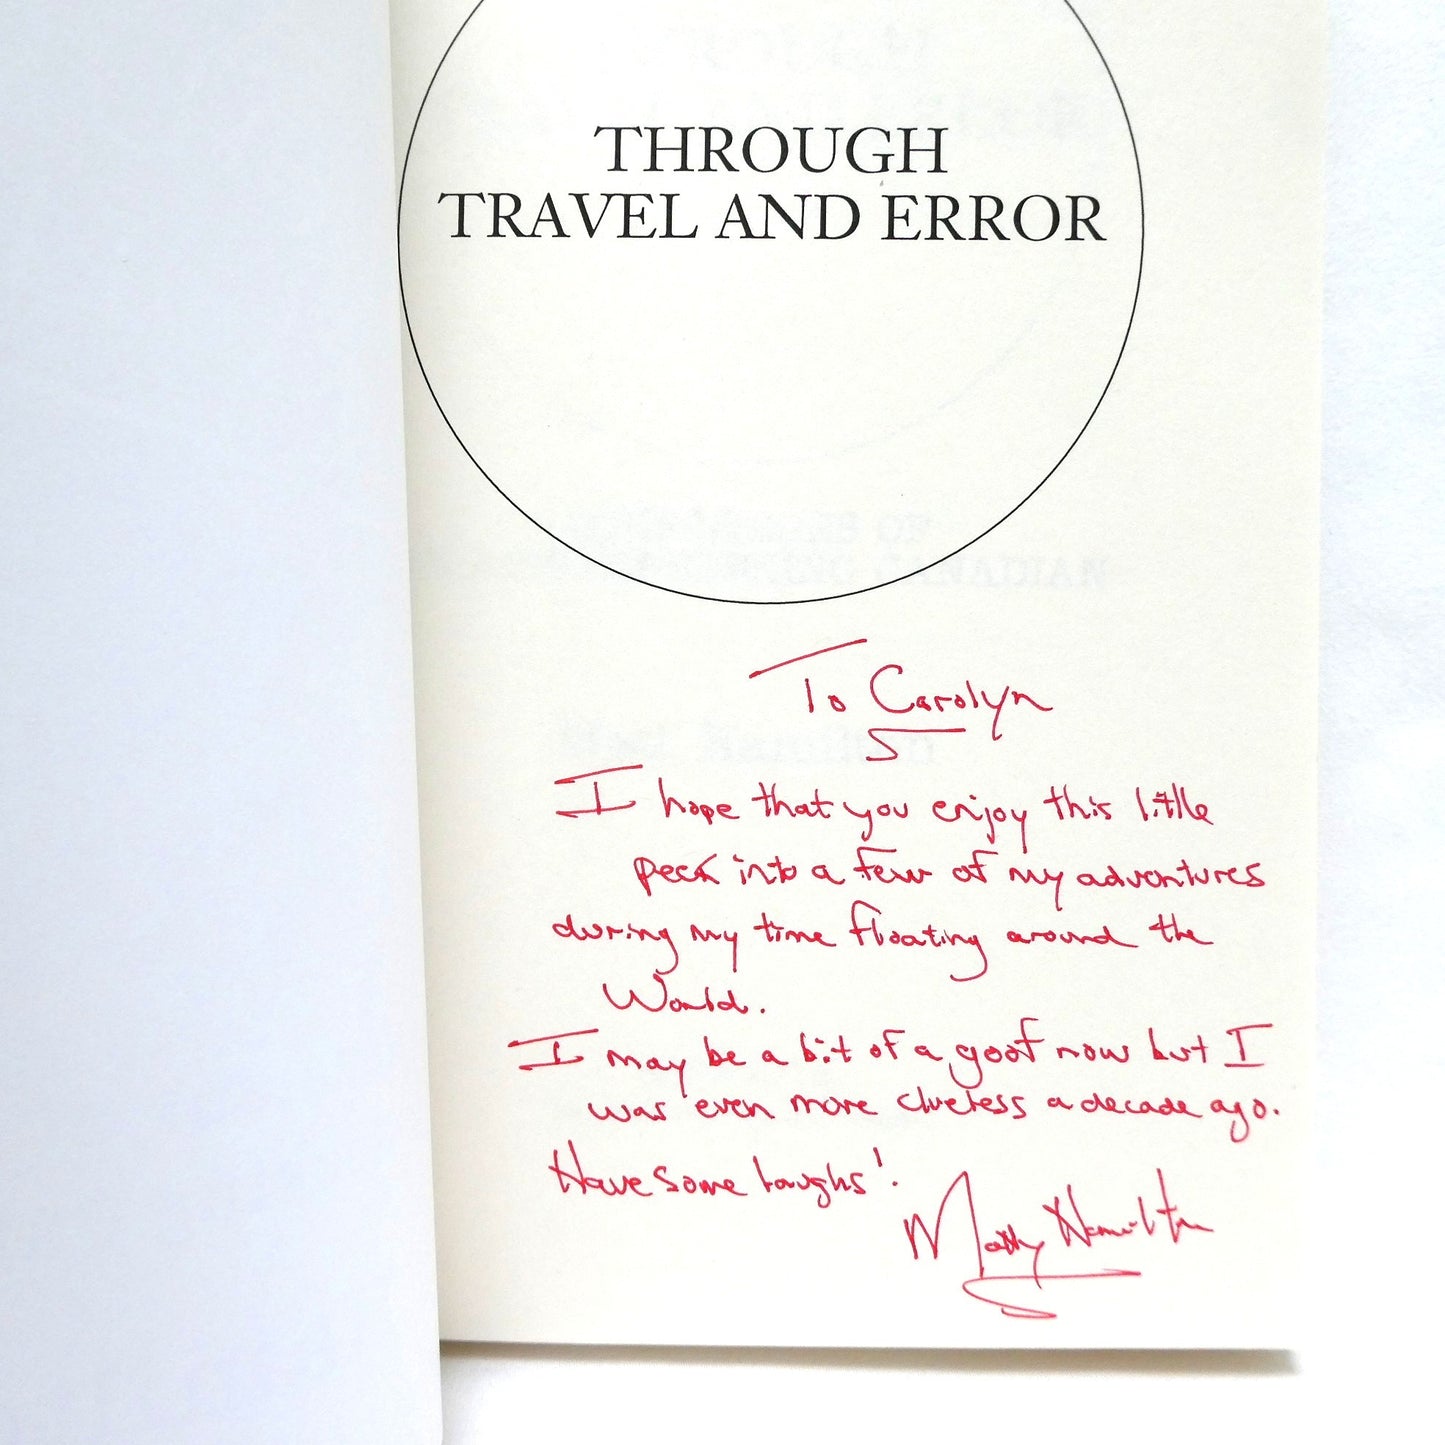 THROUGH
TRAVEL AND ERROR
OF
CANADIAN
Hamilton
To Carolyn
I hope that you enjoy this little
peek into a few of my adventures
during my time floating around the
World.
I may be a bit of a goof now but I
was even more clueless a decade ago.
Have some laughs!
Matty Hamilton